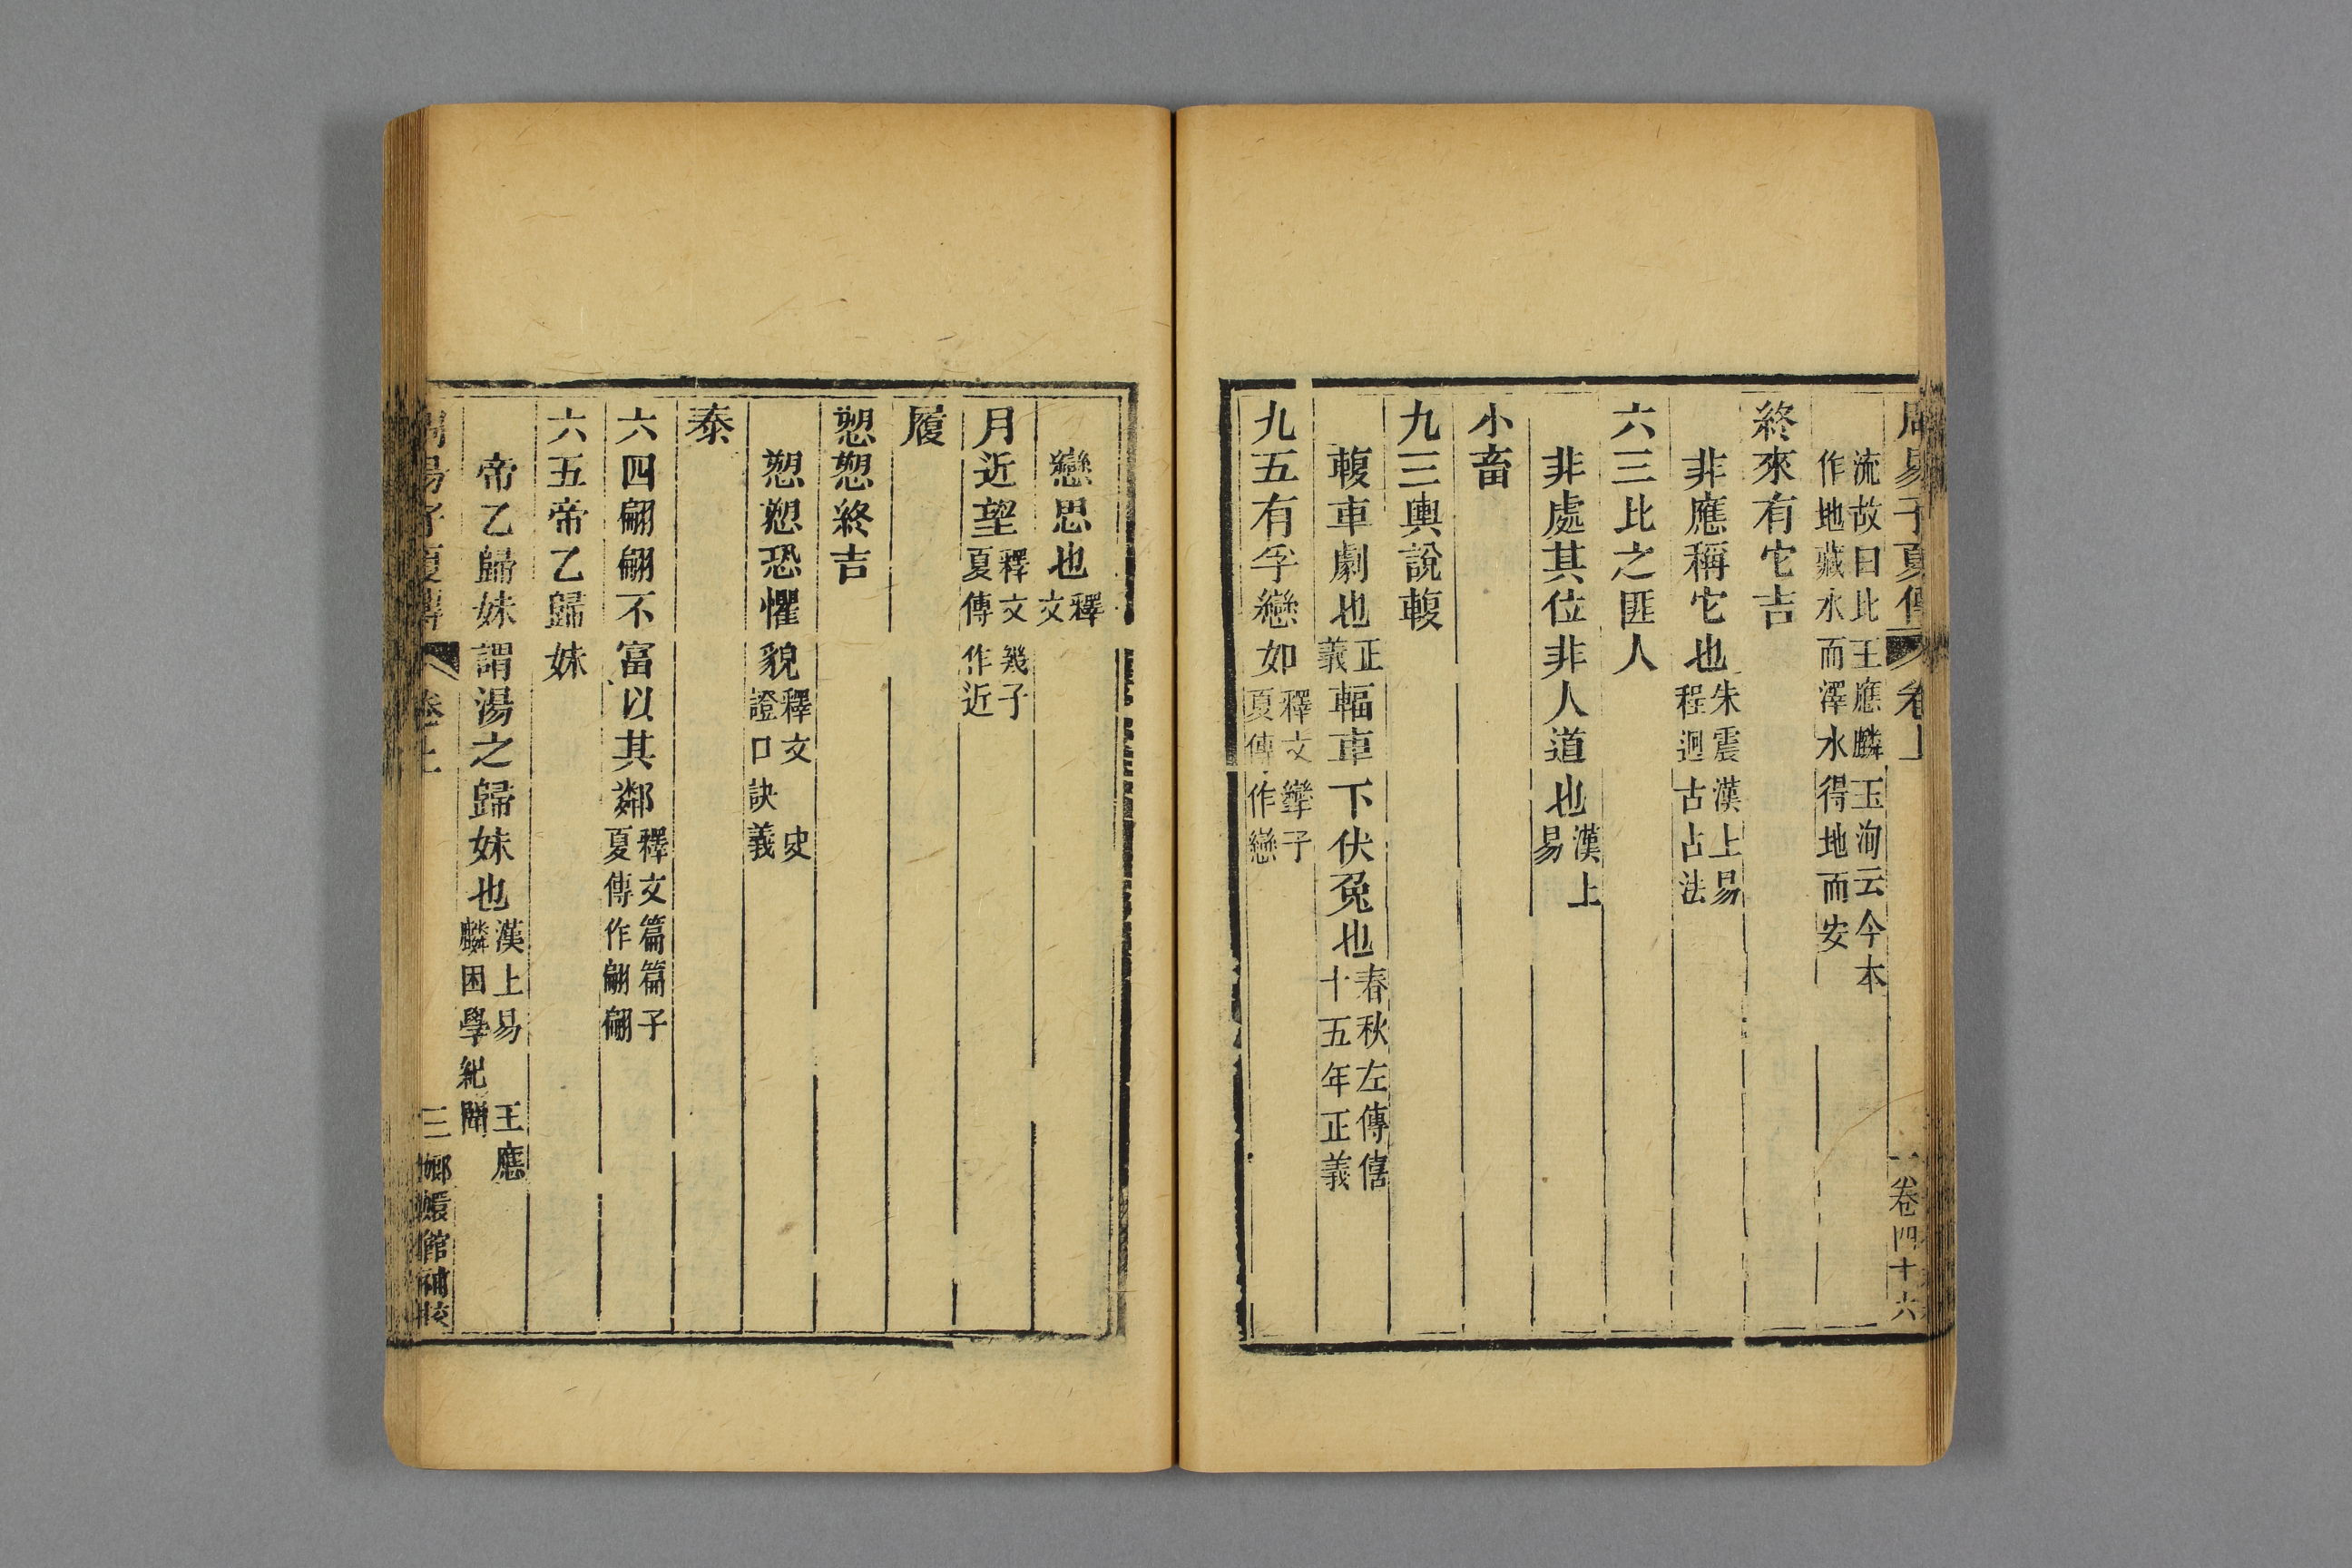 周易子夏傳 卷上 一 卷四十六
流故曰比王應麟玉海云今本
作地藏水而澤水得地而安
終來有它吉
非應稱它也朱震漢上易
程迥古占法
六三比之匪人
非處其位非人道也漢上
易
小畜
九三輿說輹
輹車劇也正
義輻車下伏兔也春秋左傳僖
十五年正義
九五有孚戀如釋文攣子
夏傳作戀
戀思也釋
文
月近望釋文幾子
夏傳作近
履
愬愬終吉
愬愬恐懼貌釋文 史
證口訣義
泰
六四翩翩不富以其鄰釋文篇篇子
夏傳作翩翩
六五帝乙歸妹
帝乙歸妹謂湯之歸妹也漢上易 王應
麟困學紀聞
周易子夏傳 卷上 三 嫏嬛館補校